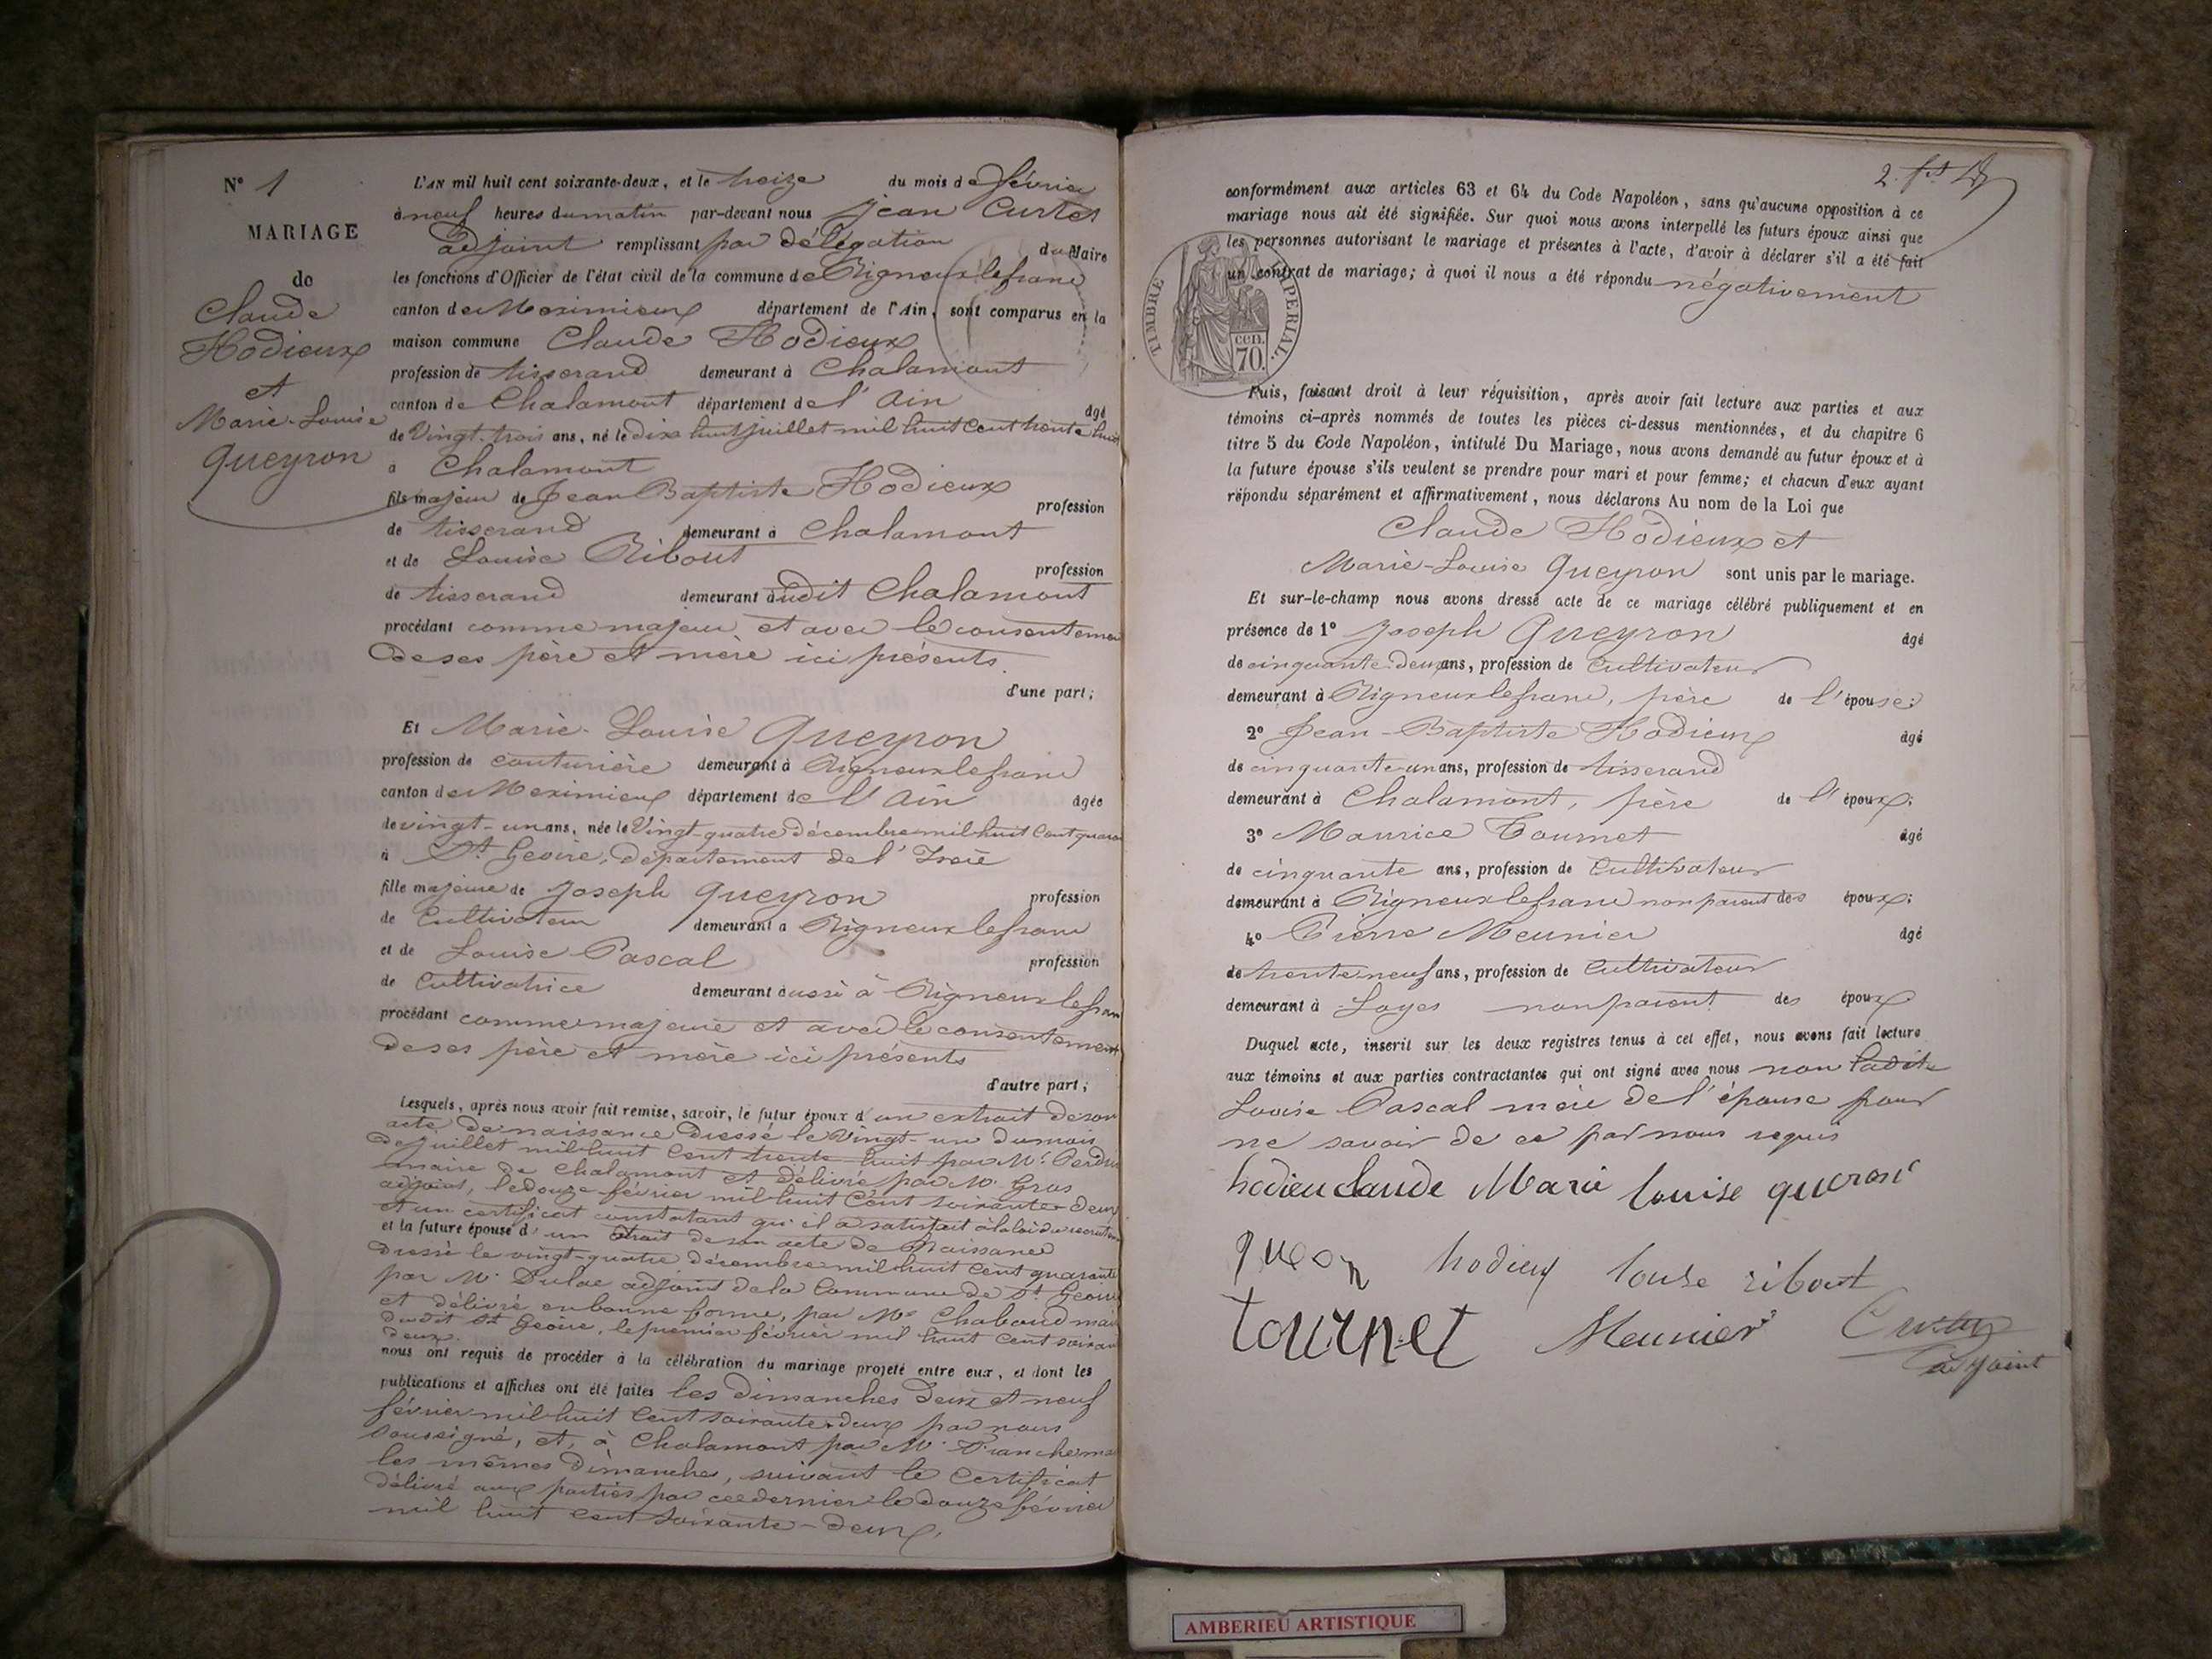 N° 1
MARIAGE
de
Claude
Hodieux
et
Marie-Louise
Queyron
L'AN mil huit cent soixante-deux, et le treize du mois de février
à neuf heures du matin par-devant nous Jean Curtet
adjoint remplissant par délégation du Maire
les fonctions d'Officier de l'état civil de la commune de Rigneux le franc
canton de Meximieux département de l'Ain, sont comparus en la
maison commune Claude Hodieux
profession de tisserand demeurant à Chalamont
canton de Chalamont département de l'Ain âgé
de Vingt-trois ans, né le dix huit juillet mil huit cent trente huit
à Chalamont
fils majeur de Jean Baptiste Hodieux profession
de tisserand demeurant à Chalamont
et de Louise Ribout profession
de tisserand demeurant audit Chalamont
procédant comme majeur et avec le consentemen
de ses père et mère ici présents.
d'une part;
Et Marie-Louise Queyron
profession de couturière demeurant à Rigneux le franc
canton de Meximieux département de l'Ain âgée
de vingt-un ans, née le Vingt-quatre décembre mil huit cent quaran
à St Geoire, département de l'Isère
fille majeure de Joseph Queyron profession
de Cultivateur demeurant à Rigneux le franc
et de Louise Pascal profession
de Cultivatrice demeurant aussi à Rigneux le fran
procédant comme majeure et avec le consentement
de ses père et mère ici présents
d'autre part;
Lesquels, après nous avoir fait remise, savoir, le futur époux d'un extrait de son
acte de naissance dressé le Vingt-un du mois
de juillet mil huit cent trente huit par Mr
maire de Chalamont et délivré par Mr Gros
adjoint, le douze février mil huit cent soixante-deux
et un certificat constatant qu'il a satisfait à la loi du recrutem
et la future épouse d'un extrait de son acte de Naissance
dressé le vingt-quatre décembre mil huit cent quarante
par Mr Dulac adjoint de la Commune de St Geoire
et délivré en bonne forme, par Mr Chaboud mai
dudit St Geoire, le premier février mil huit cent soixan
deux.
nous ont requis de procéder à la célébration du mariage projeté entre eux, et dont les
publications et affiches ont été faites les dimanches deux et neuf
février mil huit cent soixante-deux par nous
soussigné, et, à Chalamont par Mr
les mêmes Dimanches, suivant le Certificat
délivré aux parties par ce dernier le douze février
mil huit cent soixante-deux,
conformément aux articles 63 et 64 du Code Napoléon, sans qu'aucune opposition à ce
mariage nous ait été signifiée. Sur quoi nous avons interpellé les futurs époux ainsi que
les personnes autorisant le mariage et présentes à l'acte, d'avoir à déclarer s'il a été fait
un contrat de mariage; à quoi il nous a été répondu négativement
TIMBRE IMPERIAL.
cen.
70.
Puis, faisant droit à leur réquisition, après avoir fait lecture aux parties et aux
témoins ci-après nommés de toutes les pièces ci-dessus mentionnées, et du chapitre 6
titre 5 du Code Napoléon, intitulé Du Mariage, nous avons demandé au futur époux et à
la future épouse s'ils veulent se prendre pour mari et pour femme; et chacun d'eux ayant
répondu séparément et affirmativement, nous déclarons Au nom de la Loi que
Claude Hodieux et
Marie-Louise Queyron sont unis par le mariage.
Et sur-le-champ nous avons dressé acte de ce mariage célébré publiquement et en
présence de 1° Joseph Queyron âgé
de cinquante-deux ans, profession de Cultivateur
demeurant à Rigneux le franc, père de l'épouse;
2° Jean-Baptiste Hodieux âgé
de cinquante-un ans, profession de tisserand
demeurant à Chalamont, père de l'époux;
3° Maurice Tournet âgé
de cinquante ans, profession de Cultivateur
demeurant à Rigneux le franc non parent des époux;
4° Pierre Meunier âgé
de trente neuf ans, profession de Cultivateur
demeurant à Loyes non parent des époux
Duquel acte, inscrit sur les deux registres tenus à cet effet, nous avons fait lecture
aux témoins et aux parties contractantes qui ont signé avec nous non ladite
Louise Pascal mère de l'épouse pour
ne savoir de ce par nous requis
hodieu claude Marie louise queron
queon hodieux louise ribout
tournet Meunier Curtet
adjoint
AMBERIEU ARTISTIQUE